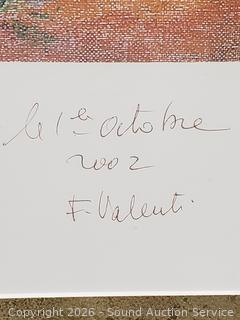 le 1er octobre
2002
F. Valenti
Copyright 2026 - Sound Auction Service